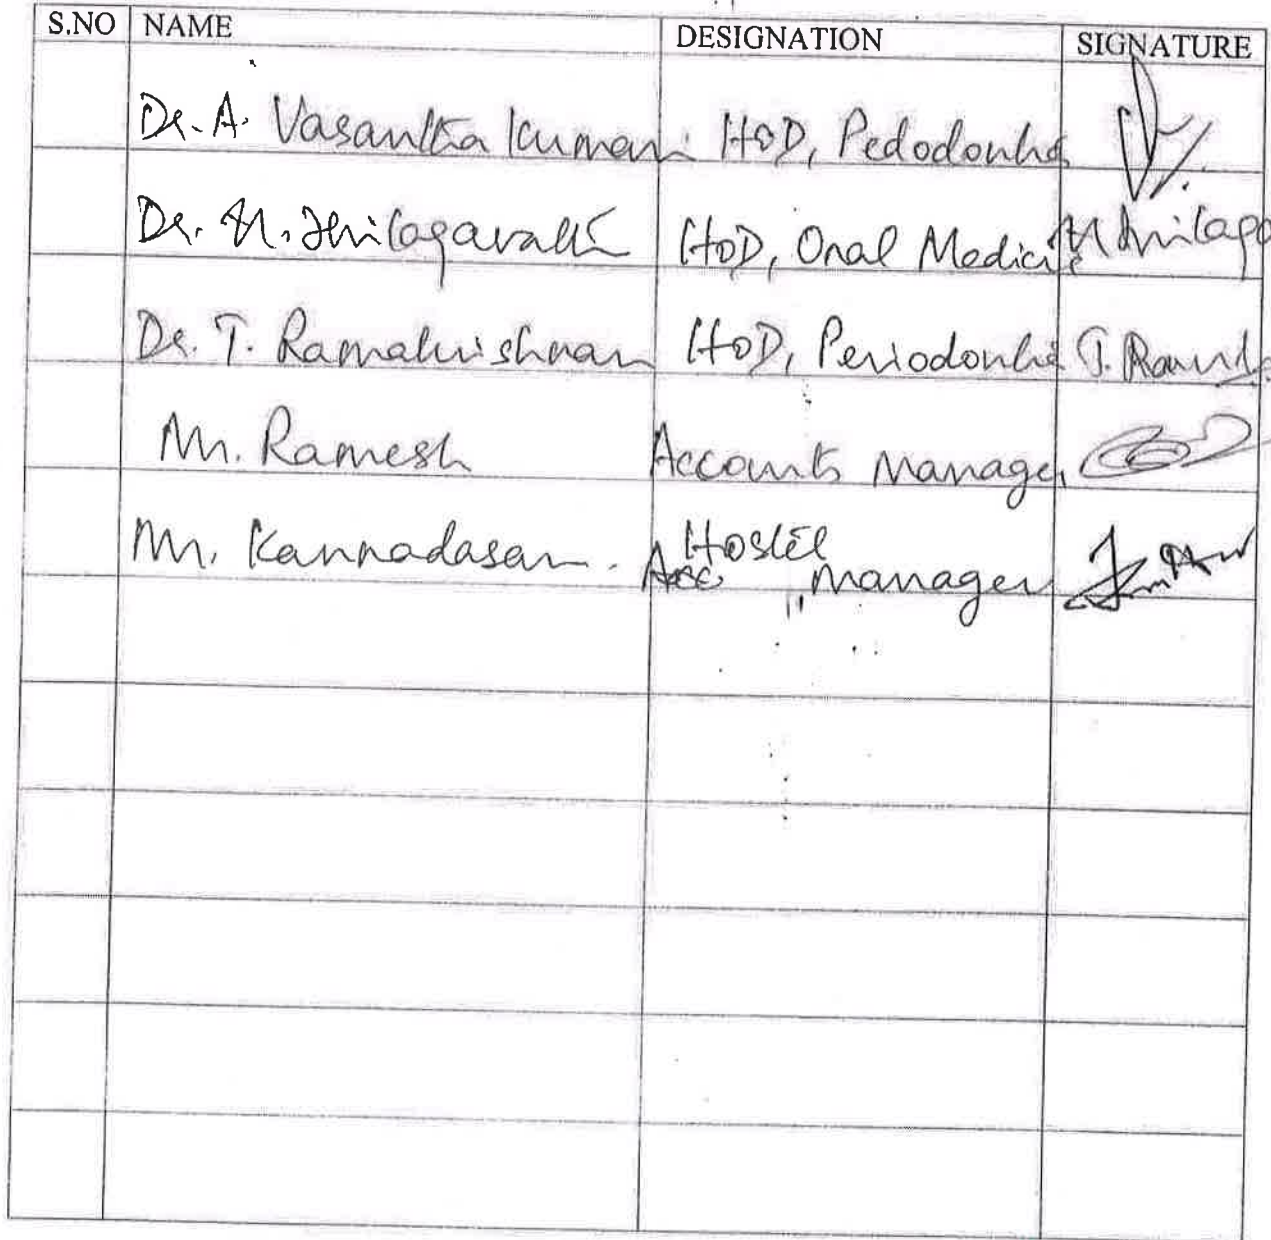 S.NO NAME DESIGNATION SIGNATURE
Dr. A. Vasantha Kumari HOD, Pedodontics
Dr. N. Thilagavathi HOD, Oral Medicine
Dr. T. Ramakrishnan HOD, Periodontics T.
Mr. Ramesh Accounts Manager
Mr. Kannadasan. Hostel
Manager